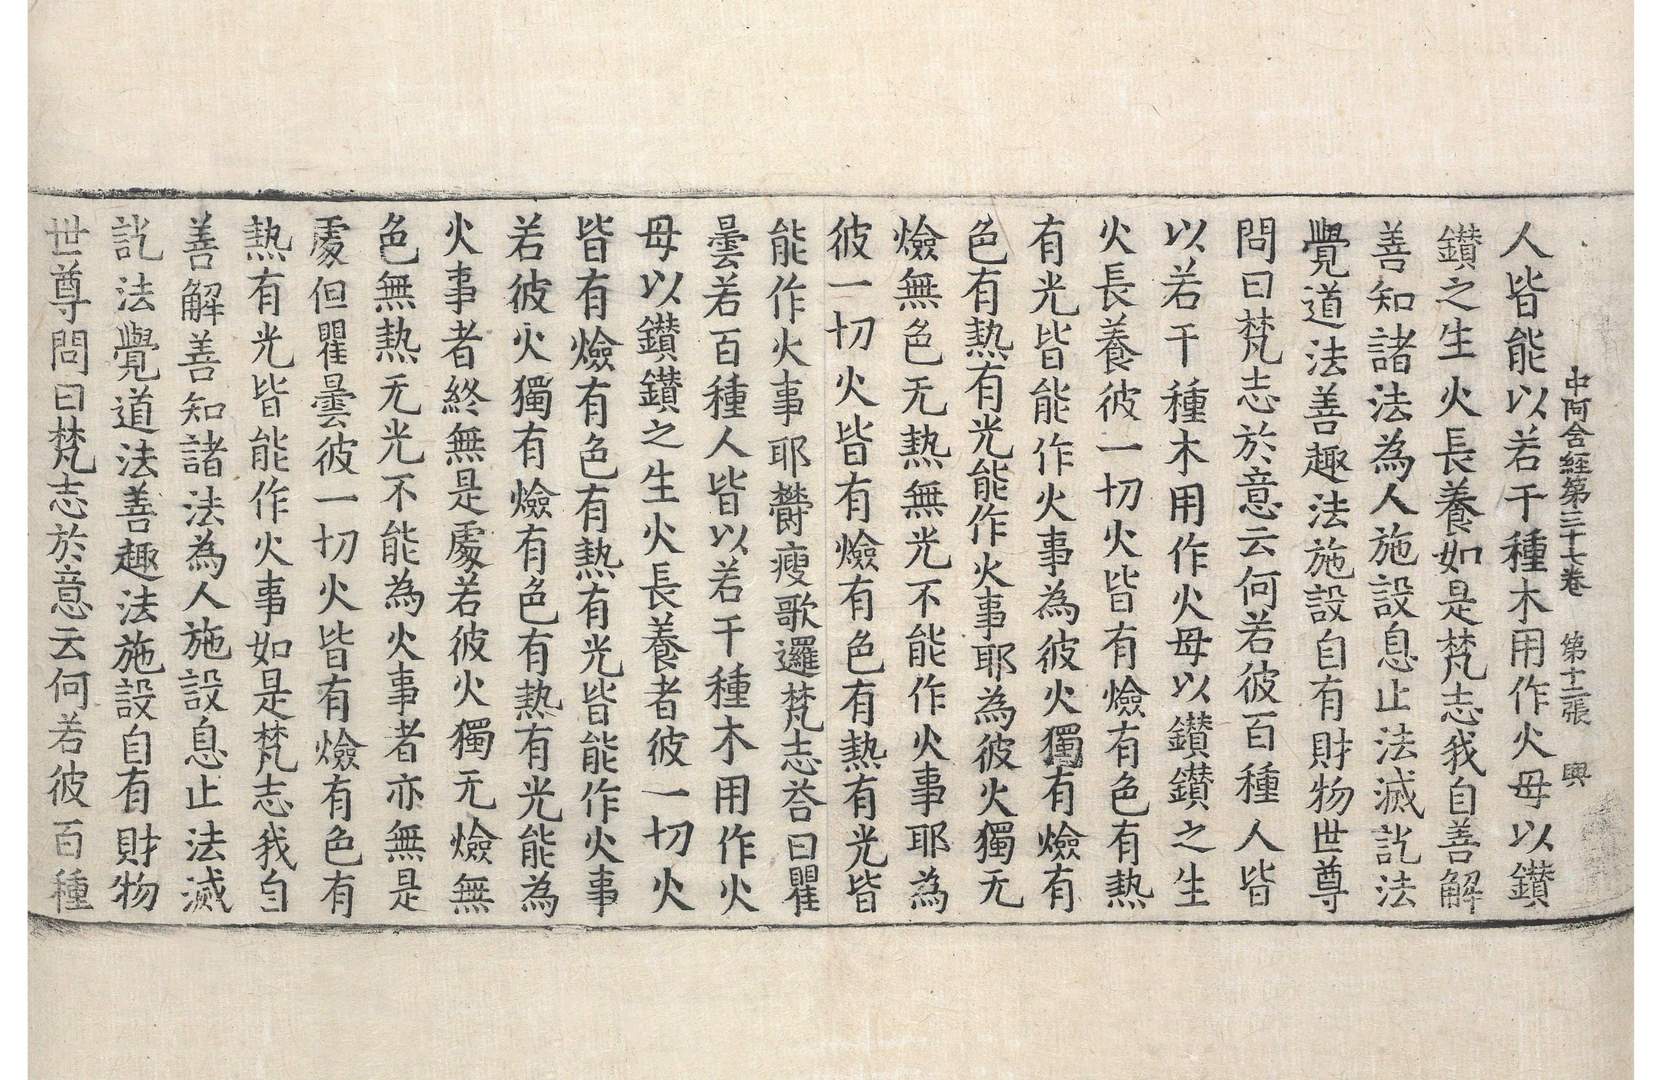 中阿含經第三十七卷 第十二張 興
人皆能以若干種木用作火母以鑚
鑚之生火長養如是梵志我自善解
善知諸法為人施設息止法滅訖法
覺道法善趣法施設自有財物世尊
問曰梵志於意云何若彼百種人皆
以若干種木用作火母以鑚鑚之生
火長養彼一切火皆有燄有色有熱
有光皆能作火事為彼火獨有燄有
色有熱有光能作火事耶為彼火獨无
燄無色无熱無光不能作火事耶為
彼一切火皆有燄有色有熱有光皆
能作火事耶欝瘦歌邏梵志荅曰瞿
曇若百種人皆以若干種木用作火
母以鑚鑚之生火長養者彼一切火
皆有燄有色有熱有光皆能作火事
若彼火獨有燄有色有熱有光能為
火事者終無是處若彼火獨无燄無
色無熱无光不能為火事者亦無是
處但瞿曇彼一切火皆有燄有色有
熱有光皆能作火事如是梵志我自
善解善知諸法為人施設息止法滅
訖法覺道法善趣法施設自有財物
世尊問曰梵志於意云何若彼百種